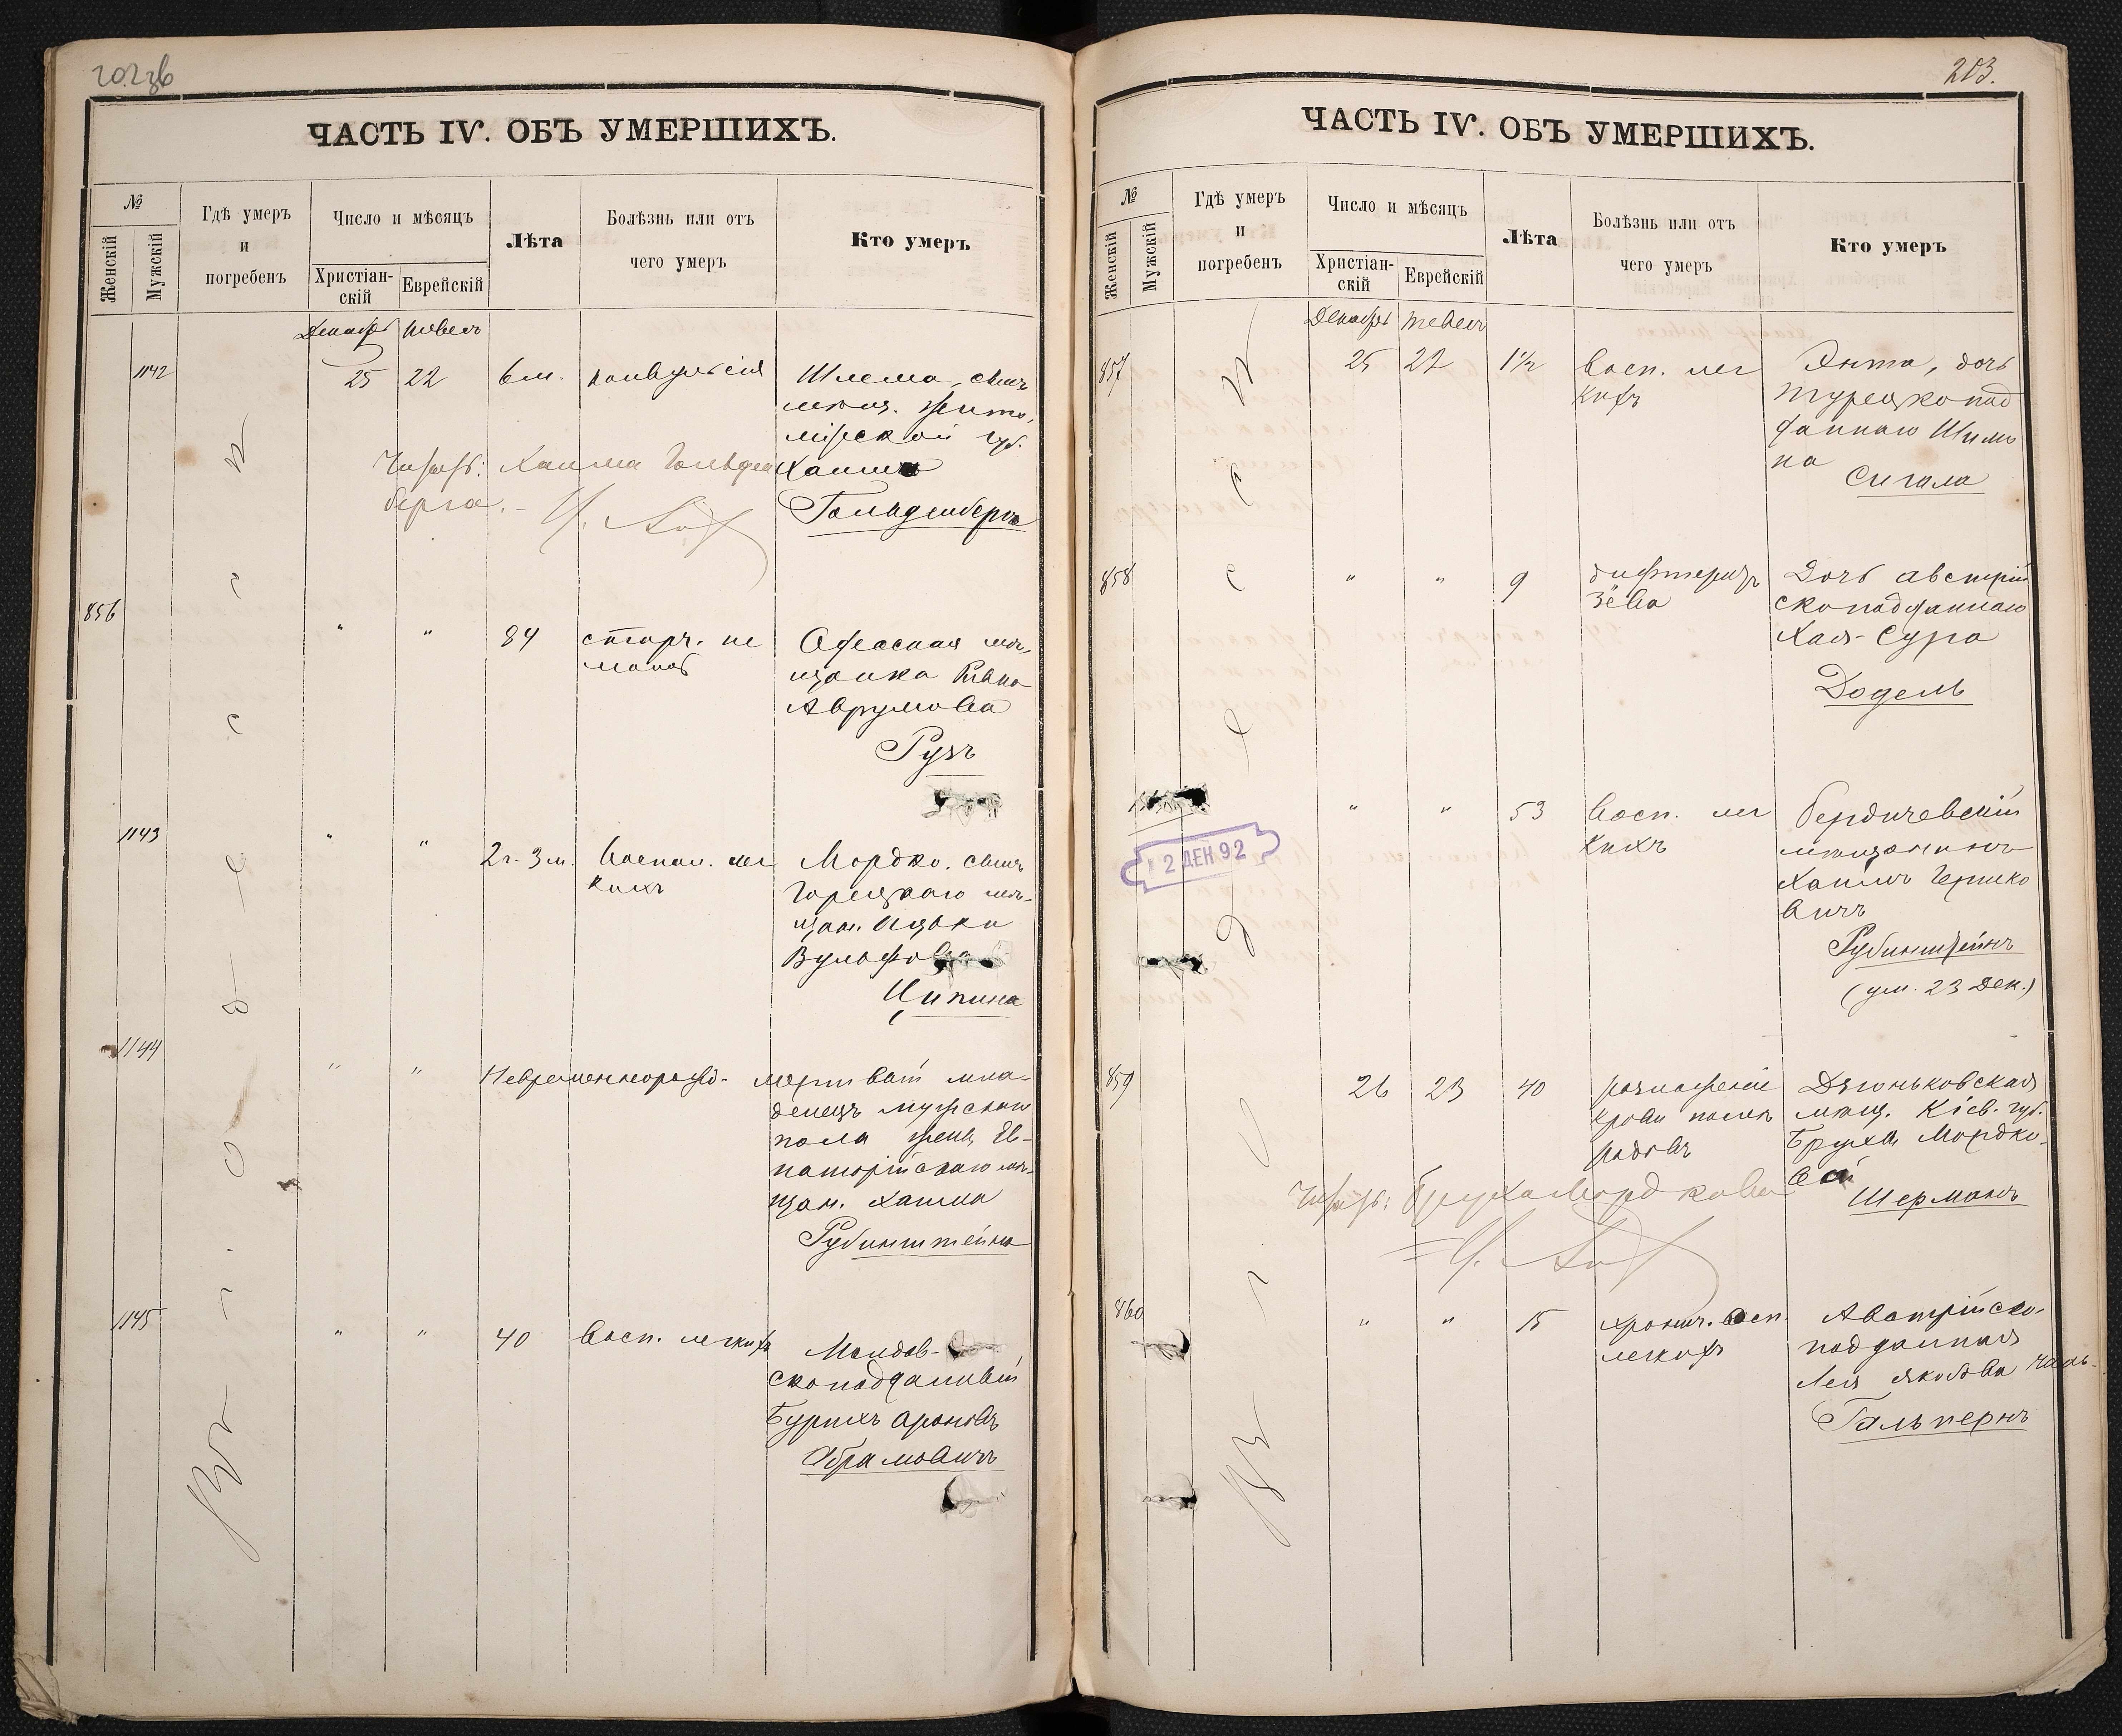 202 об
ЧАСТЬ IV. ОБЪ УМЕРШИХЪ.
№
Женскій
Мужскій
Гдѣ умеръ
и
погребенъ
Число и мѣсяцъ
Христіан-
скій
Еврейскій
Лѣта
Болѣзнь или отъ
чего умеръ
Кто умеръ
Декабрь
Тевесъ
1142
25
22
6 м.
конвульсія
Шлема, сынъ
мѣщ. Жито-
мірской губ.
Хаима
Гольденберга
Читать: Хаима Гольден
берга.
856
"
"
84
старч. не
мощь
Одесская мѣ-
щанка Ривка
Аврумова
Рузъ
1143
"
"
2 г. 3 м.
воспал. лег
кихъ
Мордко, сынъ
Горецкаго мѣ-
щан. Ицки
Вульфова
Ципина
1144
"
"
Невременнорожд.
мертвый мла-
денецъ мужскаго
пола жены Ев-
паторійскаго мѣ-
щан. Хаима
Рубинштейна
1145
"
"
40
восп. легкихъ
Молдав-
скоподданный
Бурихъ Ароновъ
Абрамовичъ
Въ г. Одессѣ
203.
ЧАСТЬ IV. ОБЪ УМЕРШИХЪ.
№
Женскій
Мужскій
Гдѣ умеръ
и
погребенъ
Число и мѣсяцъ
Христіан-
скій
Еврейскій
Лѣта
Болѣзнь или отъ
чего умеръ
Кто умеръ
Декабрь
Тевесъ
857
25
22
1½
восп. лег
кихъ
Энта, дочь
турецкопод
даннаго Шимо
на
Сигала
858
"
"
9
дифтеритъ
зѣва
Дочь австрій
скоподданнаго
Хая-Сура
Додель
"
"
53
восп. лег
кихъ
Бердичевскій
мѣщанинъ
Хаимъ Гершко
вичъ
Рубинштейнъ
(ум. 23 Дек.)
2 ДЕН 92
859
26
23
40
разложеніе
крови послѣ
родовъ
Дзюньковская
мѣщ. Кіев. губ.
Бруха Мордко-
ва
Шерманъ
Читать: Бруха Мордкова
860
"
"
15
хронич. восп.
легкихъ
Австрійско-
подданная
Лея Якобова
Гальпернъ
Въ г. Одессѣ